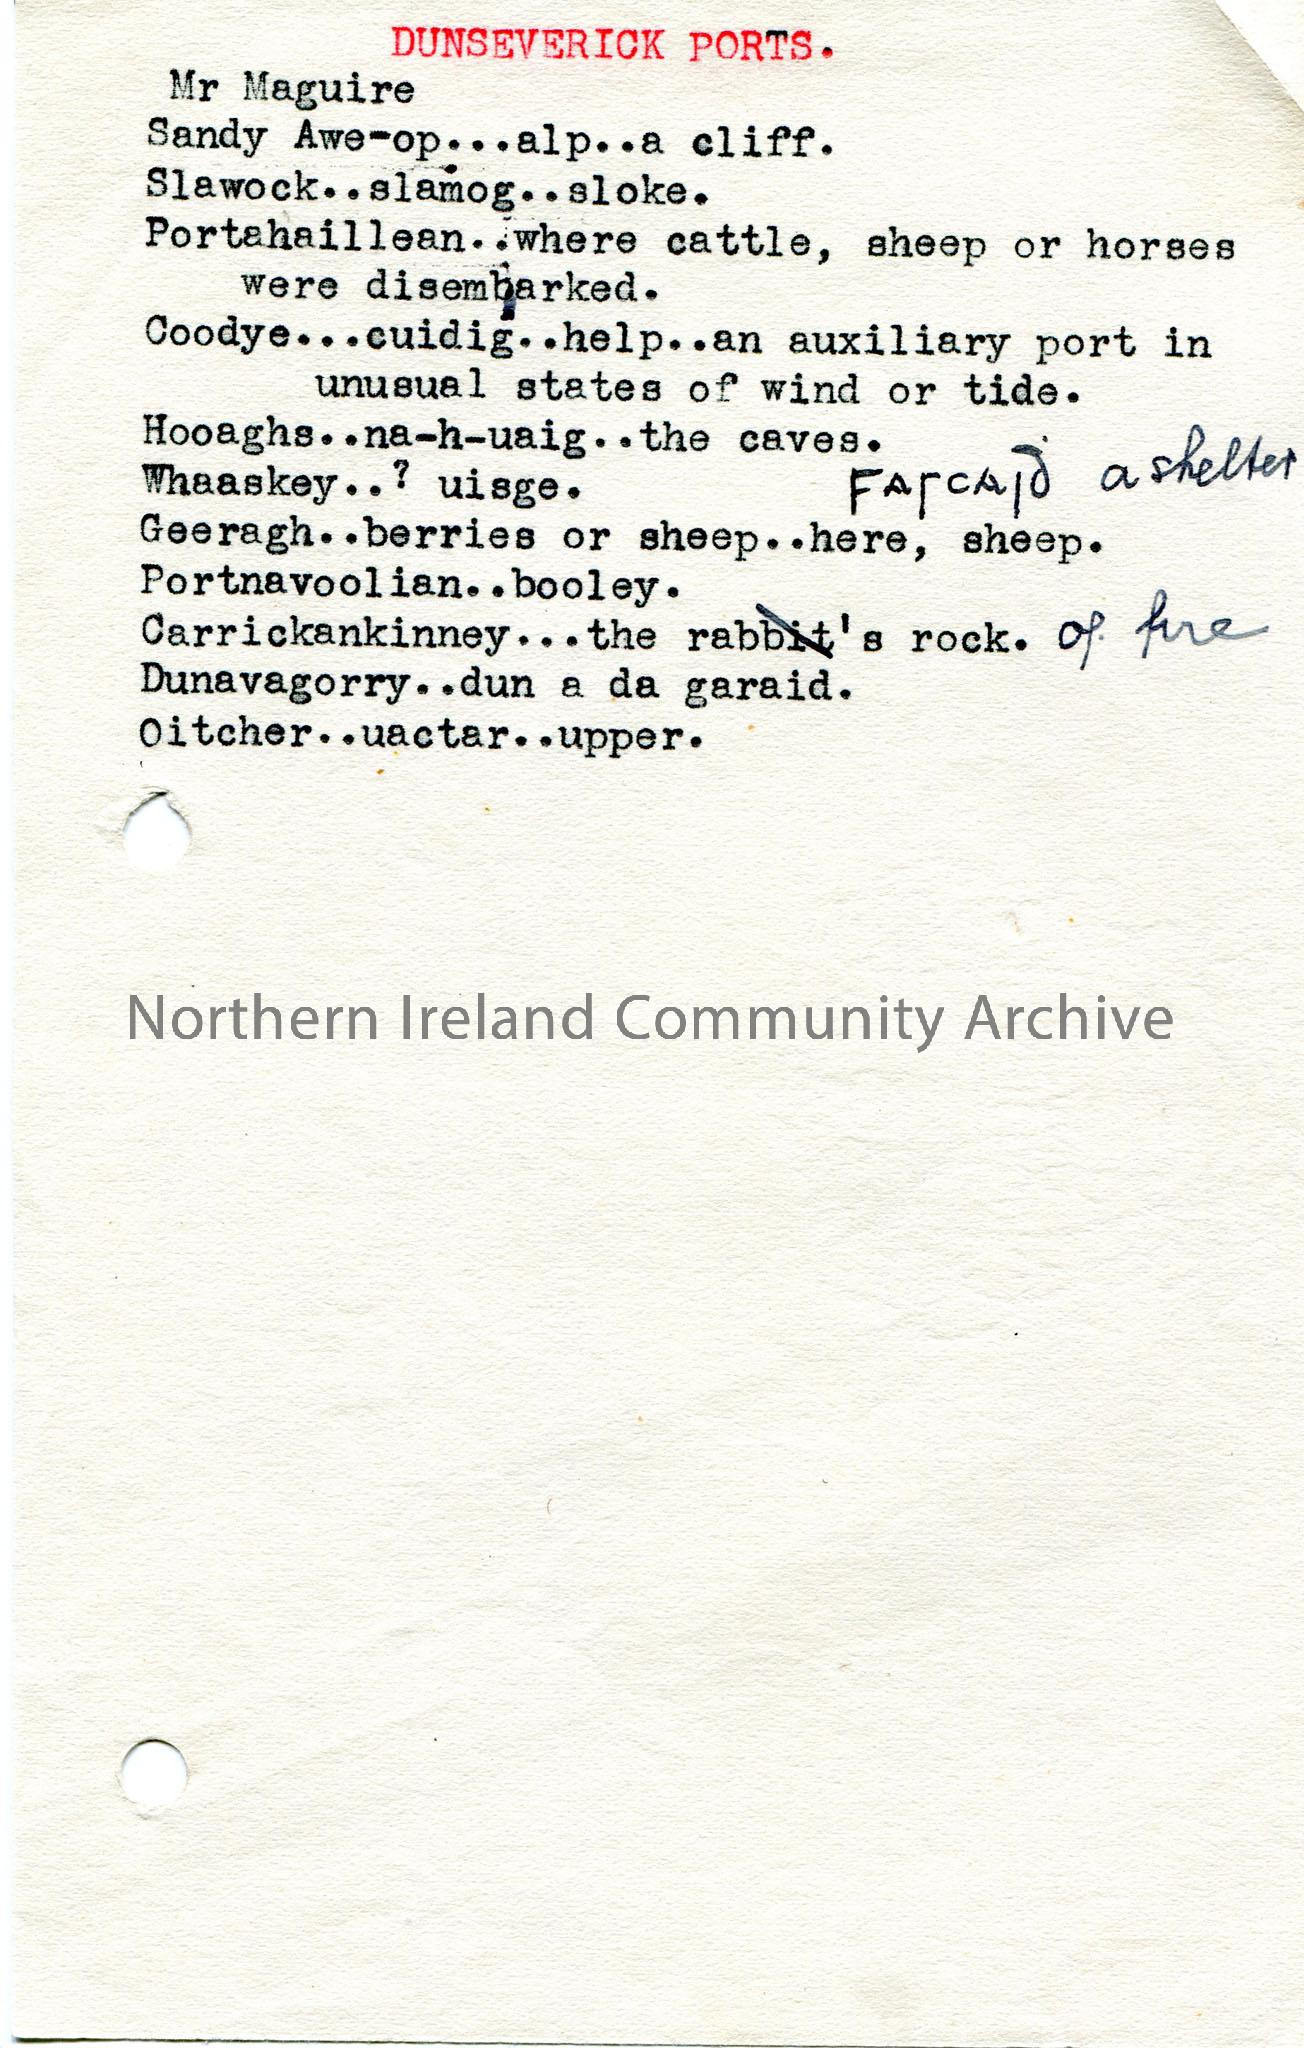 DUNSEVERICK PORTS.
Mr Maguire
Sandy Awe-op...alp..a cliff.
Slawock..slaṁog..sloke.
Portahaillean..where cattle, sheep or horses
were disembarked.
Coodye...cuidig..help..an auxiliary port in
unusual states of wind or tide.
Hooaghs..na-h-uaig..the caves.
Whaaskey..? uisge. FAꞃCAIḋ a shelter
Geeragh..berries or sheep..here, sheep.
Portnavoolian..booley.
Carrickankinney...the rabbit's rock. of fire
Dunavagorry..dun a da garaid.
Oitcher..uactar..upper.
Northern Ireland Community Archive